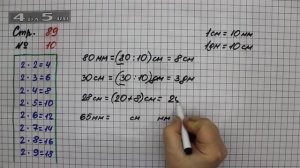 4 на 5.ru
Стр. 89
№ 10
2 · 2 = 4
2 · 3 = 6
2 · 4 = 8
2 · 5 = 10
2 · 6 = 12
2 · 7 = 14
2 · 8 = 16
2 · 9 = 18
80 мм = (80 : 10) см = 8 см
30 см = (30 : 10) дм = 3 дм
28 см = (20 + 8) см = 2
65 мм = см мм
1 см = 10 мм
1 дм = 10 см